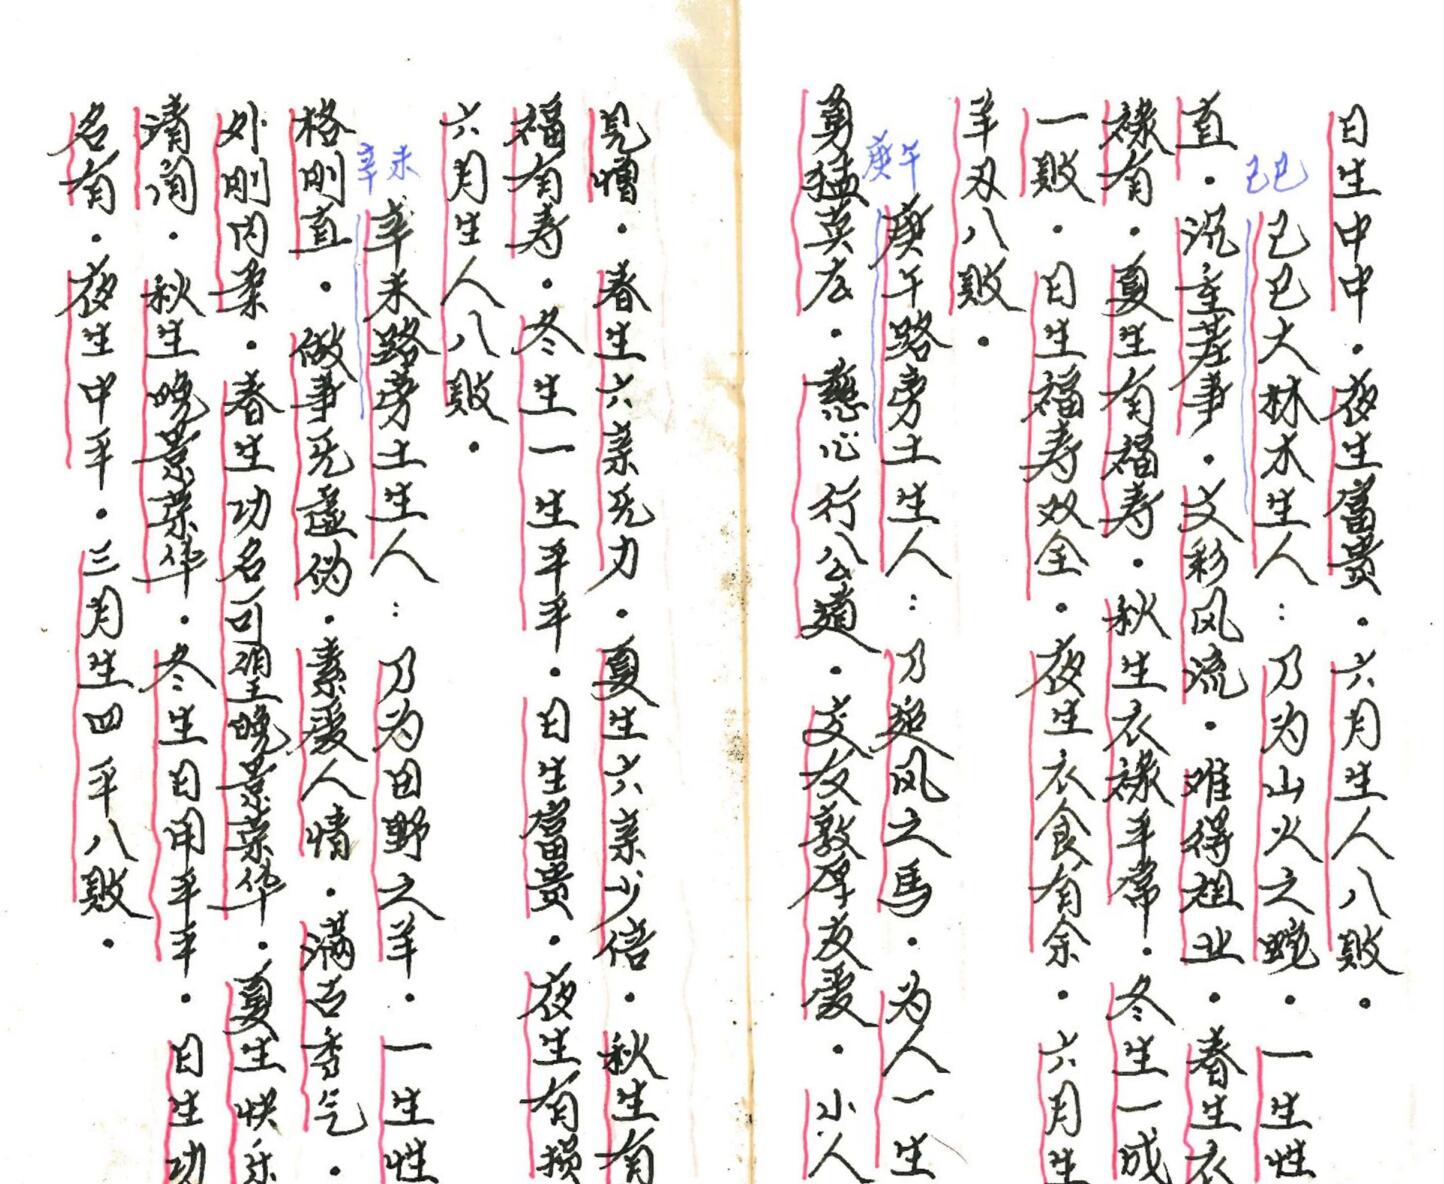 日生中中．夜生富贵．六月生人八败．
己巳
己巳大林木生人：乃为山火之蛇．一生性
直．沉重差事．文彩风流．难得祖业．春生衣
禄有．夏生有福寿．秋生衣禄平常．冬生一成
一败．日生福寿双全．夜生衣食有余．六月生
羊刃八败．
庚午
庚午路旁土生人：乃追风之馬．为人一生
勇猛英左．慈心行公道．交友敦厚友爱．小人
見憎．春生六亲旡力．夏生六亲少倍．秋生有
福有寿．冬生一生平平．日生富贵．夜生有损
六月生人八败．
辛未
辛未路旁土生人：乃为田野之羊．一生性
格刚直．做事旡虚伪．素爱人情．满舌香气．
外刚内柔．春生功名可望晚景荣华．夏生快乐
清闲．秋生晚景荣华．冬生日用平平．日生功
名有．夜生中平．三月生四平八败．